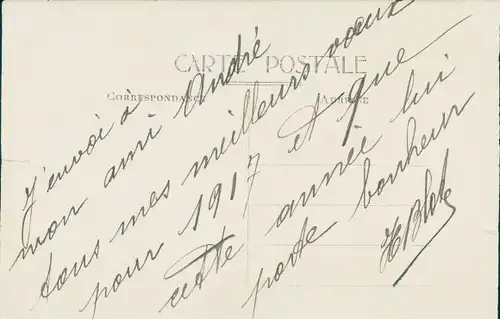 CARTE POSTALE
CORRESPONDANCE
ADRESSE
J'envoi à
mon ami André
tous mes meilleurs vœux
pour 1917 et que
cette année lui
porte bonheur